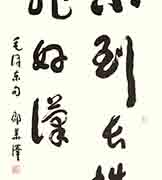 不到长城
非好漢
毛泽东句